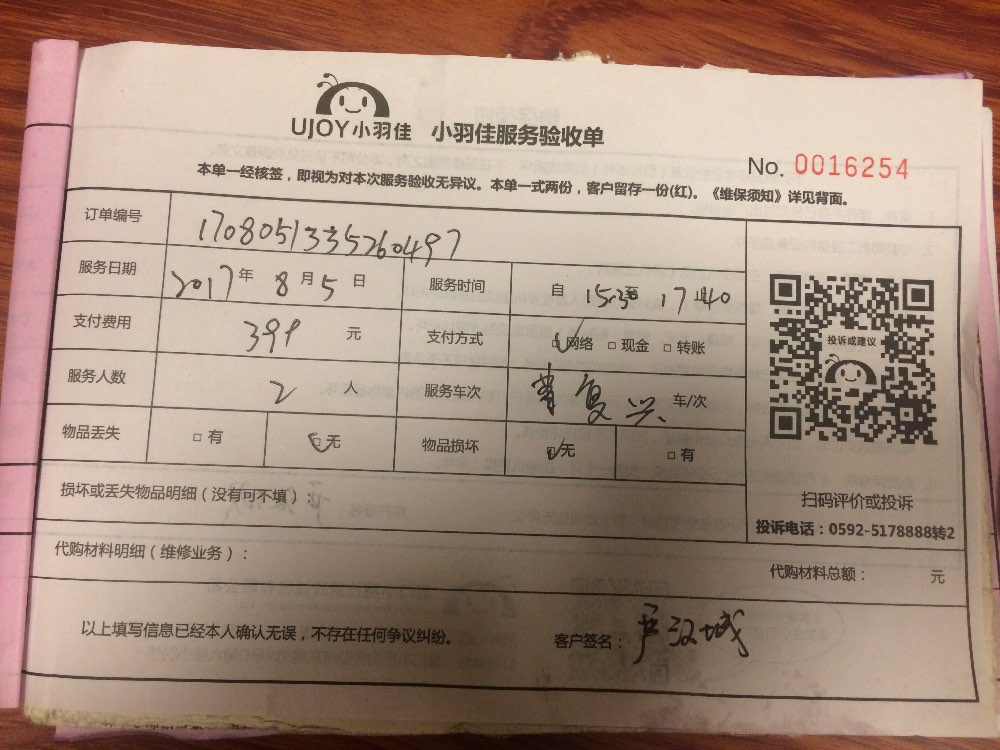 UJOY小羽佳 小羽佳服务验收单
No. 0016254
本单一经核签，即视为对本次服务验收无异议。本单一式两份，客户留存一份(红)。《维保须知》详见背面。
订单编号 1708051335260497
服务日期 2017年 8月5日 服务时间 自 15:30至 17:40
支付费用 399 元 支付方式 ☑网络 □现金 □转账
服务人数 2 人 服务车次 复兴 车/次
物品丢失 □有 ☑无 物品损坏 ☑无 □有
投诉或建议
扫码评价或投诉
投诉电话：0592-5178888转2
损坏或丢失物品明细（没有可不填）：
代购材料明细（维修业务）：
代购材料总额： 元
以上填写信息已经本人确认无误，不存在任何争议纠纷。 客户签名：